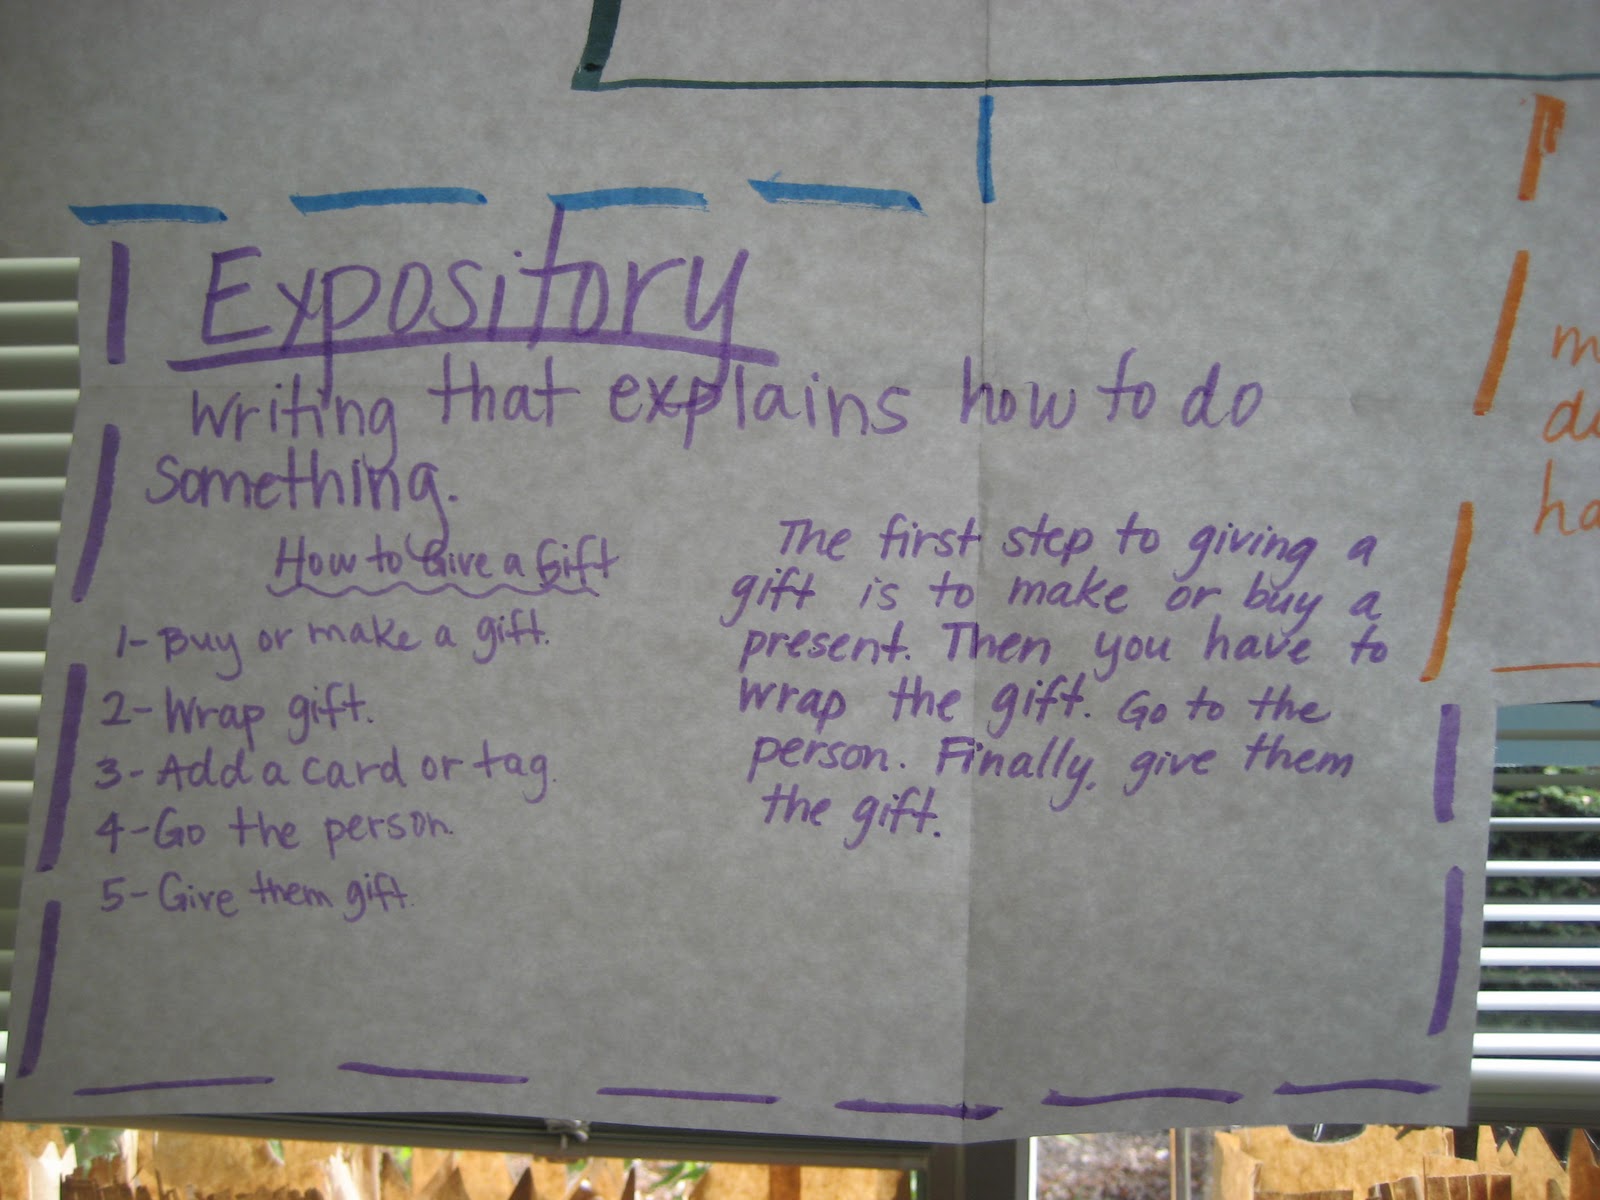 Expository
Writing that explains how to do
something.
How to Give a Gift
1- Buy or make a gift.
2- Wrap gift.
3- Add a card or tag.
4- Go the person.
5- Give them gift.
The first step to giving a
gift is to make or buy a
present. Then you have to
wrap the gift. Go to the
person. Finally, give them
the gift.